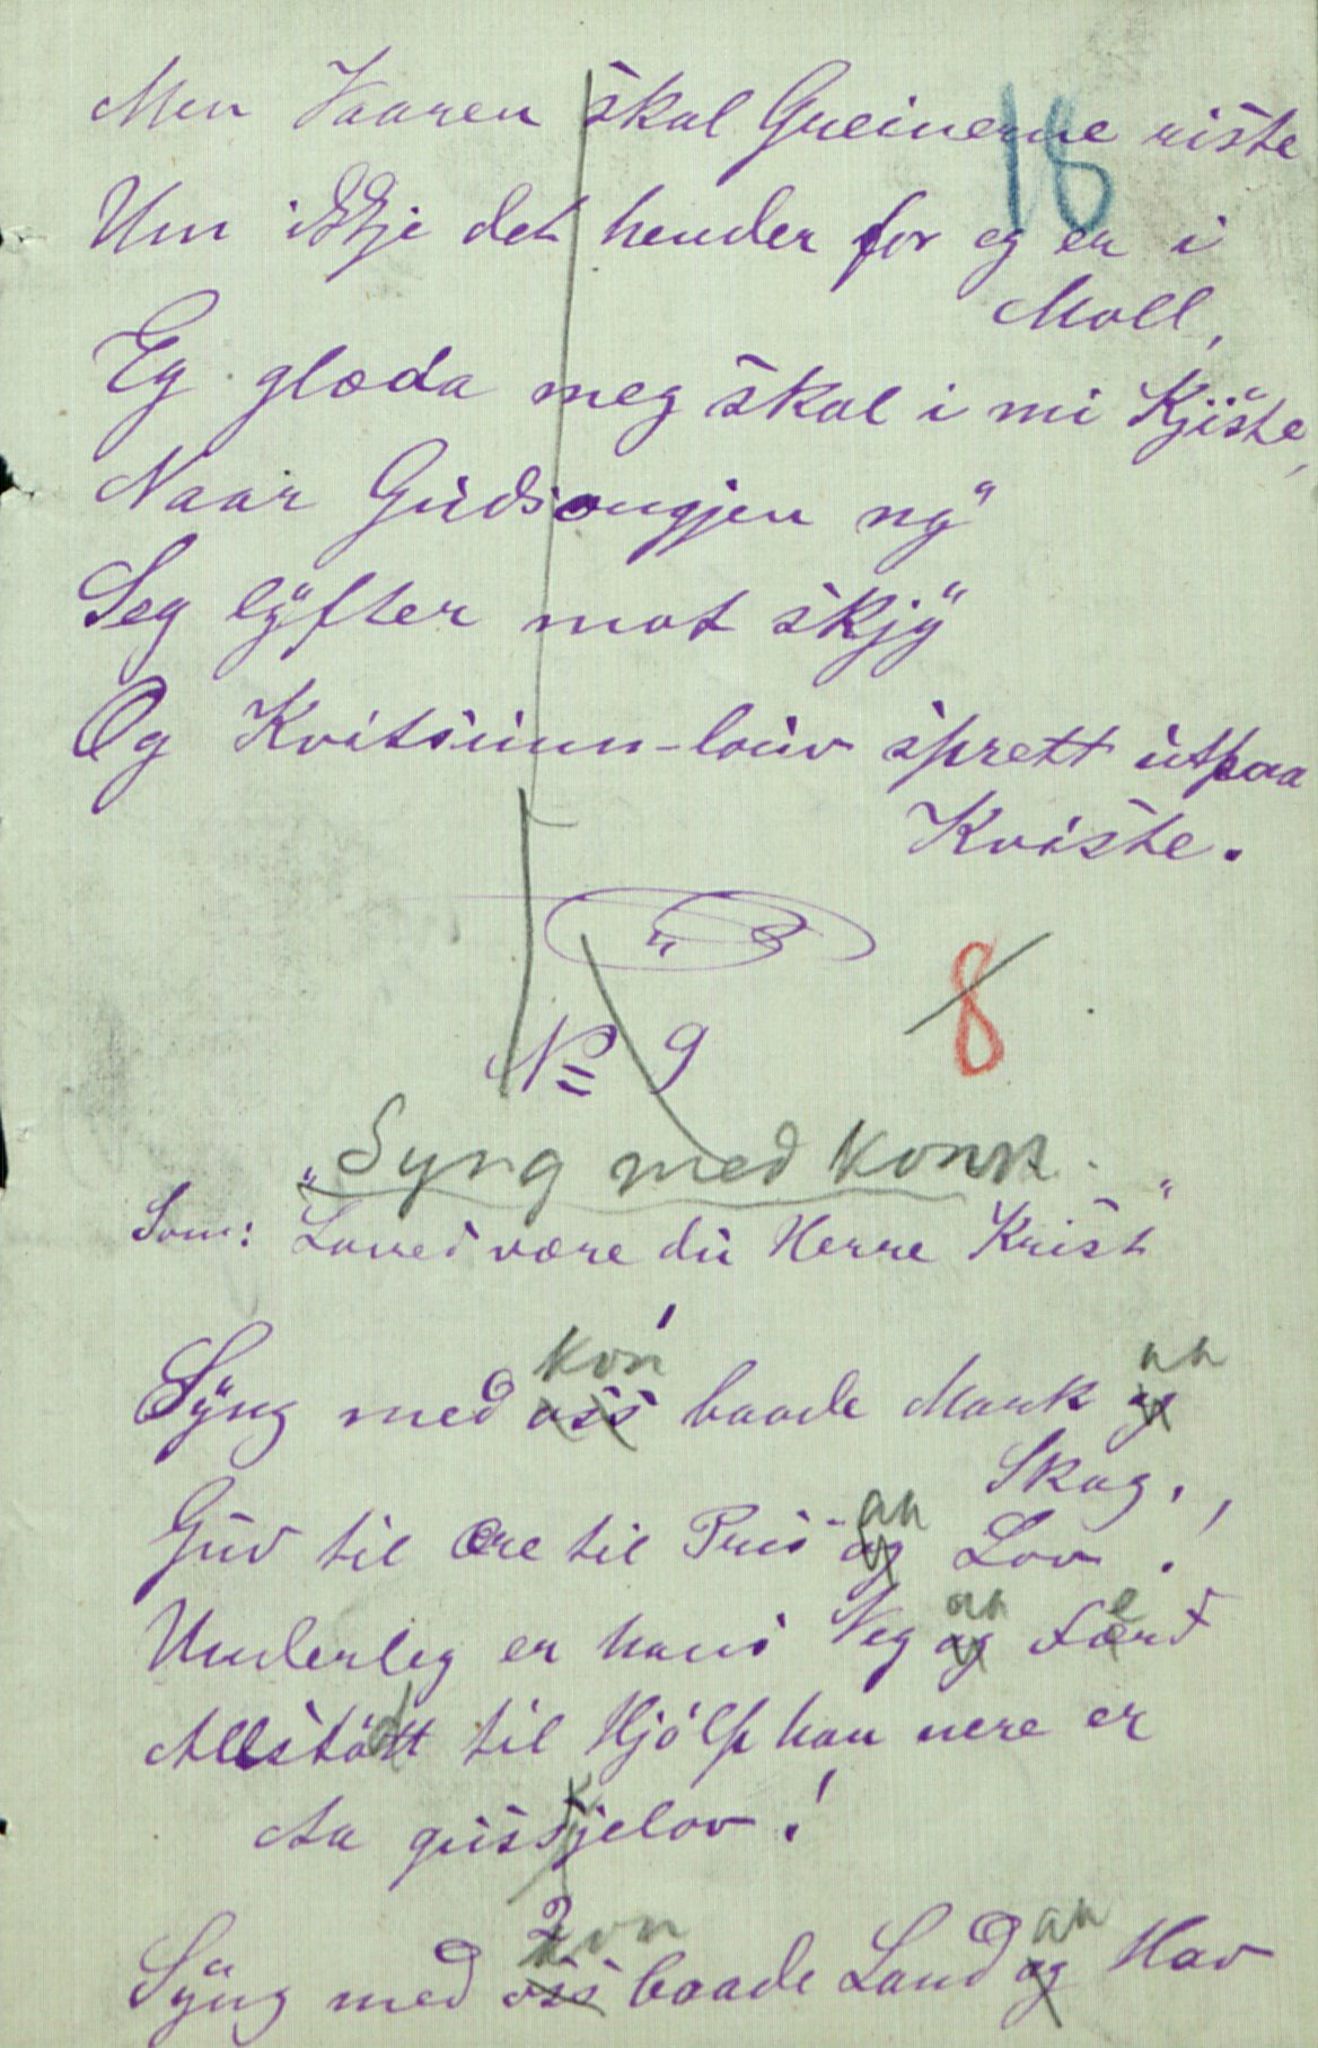 18
Men Vaaren skal Greinerne riste
Um ikkje det hender for eg er i
Moll,
Eg glæda meg skal i mi Kjiste,
Naar Gudsongjen ny
Seg lyfter mot skjy
Og Kvitsunn-lauv sprett utpaa
Kviste.
8
No 9
Syng med konn
Som: "Lovet være du Herre Krist"
kon aa
Syng med oss baade Mark og
Skog,
aa
Gud til Ære til Pris og Lov!
aa e
Underleg er hans Veg og Færd
Allstødt til Hjólp han nere er
k
Aa gustjelov!
2
kon aa
Syng med oss baade Land og Hav